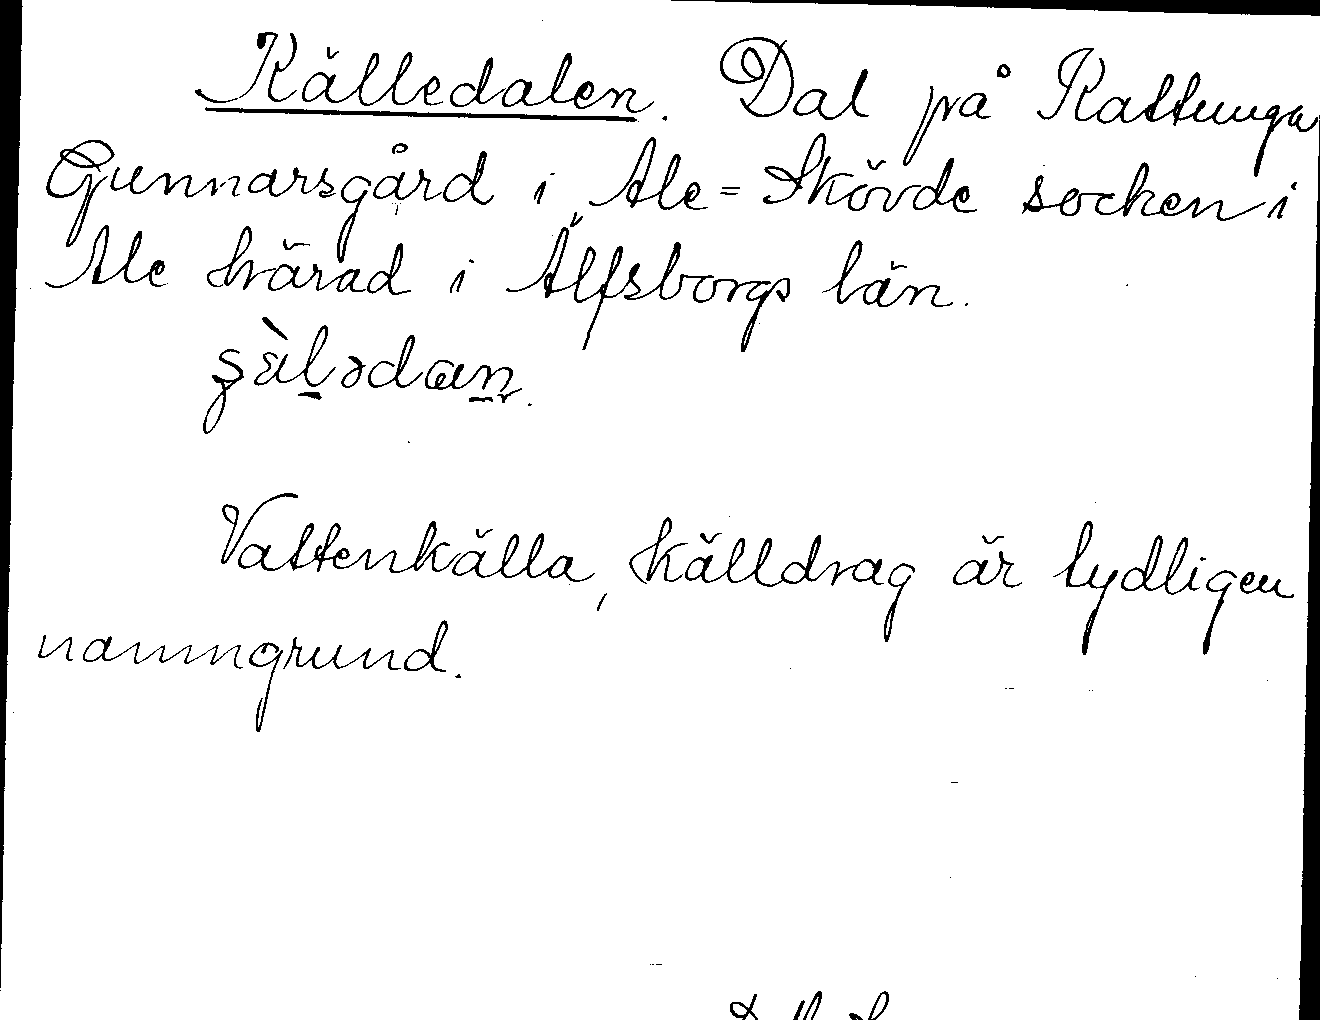 Källedalen. Dal på Kattunga
Gunnarsgård i Ale=Skövde socken i
Ale härad i Älfsborgs län.
Vattenkälla, källdrag är tydligen
namngrund.